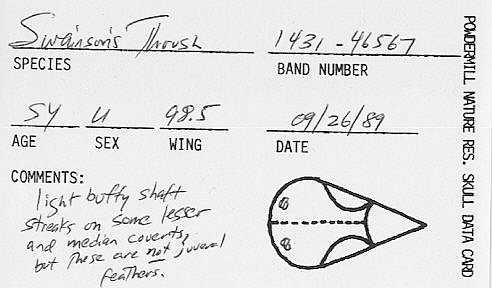 Swainson's Thrush
SPECIES
1431-46567
BAND NUMBER
SY U 98.5
AGE SEX WING
09/26/89
DATE
COMMENTS:
light buffy shaft
streaks on some lesser
and median coverts,
but these are not juvenal
feathers.
POWDERMILL NATURE RES. SKULL DATA CARD